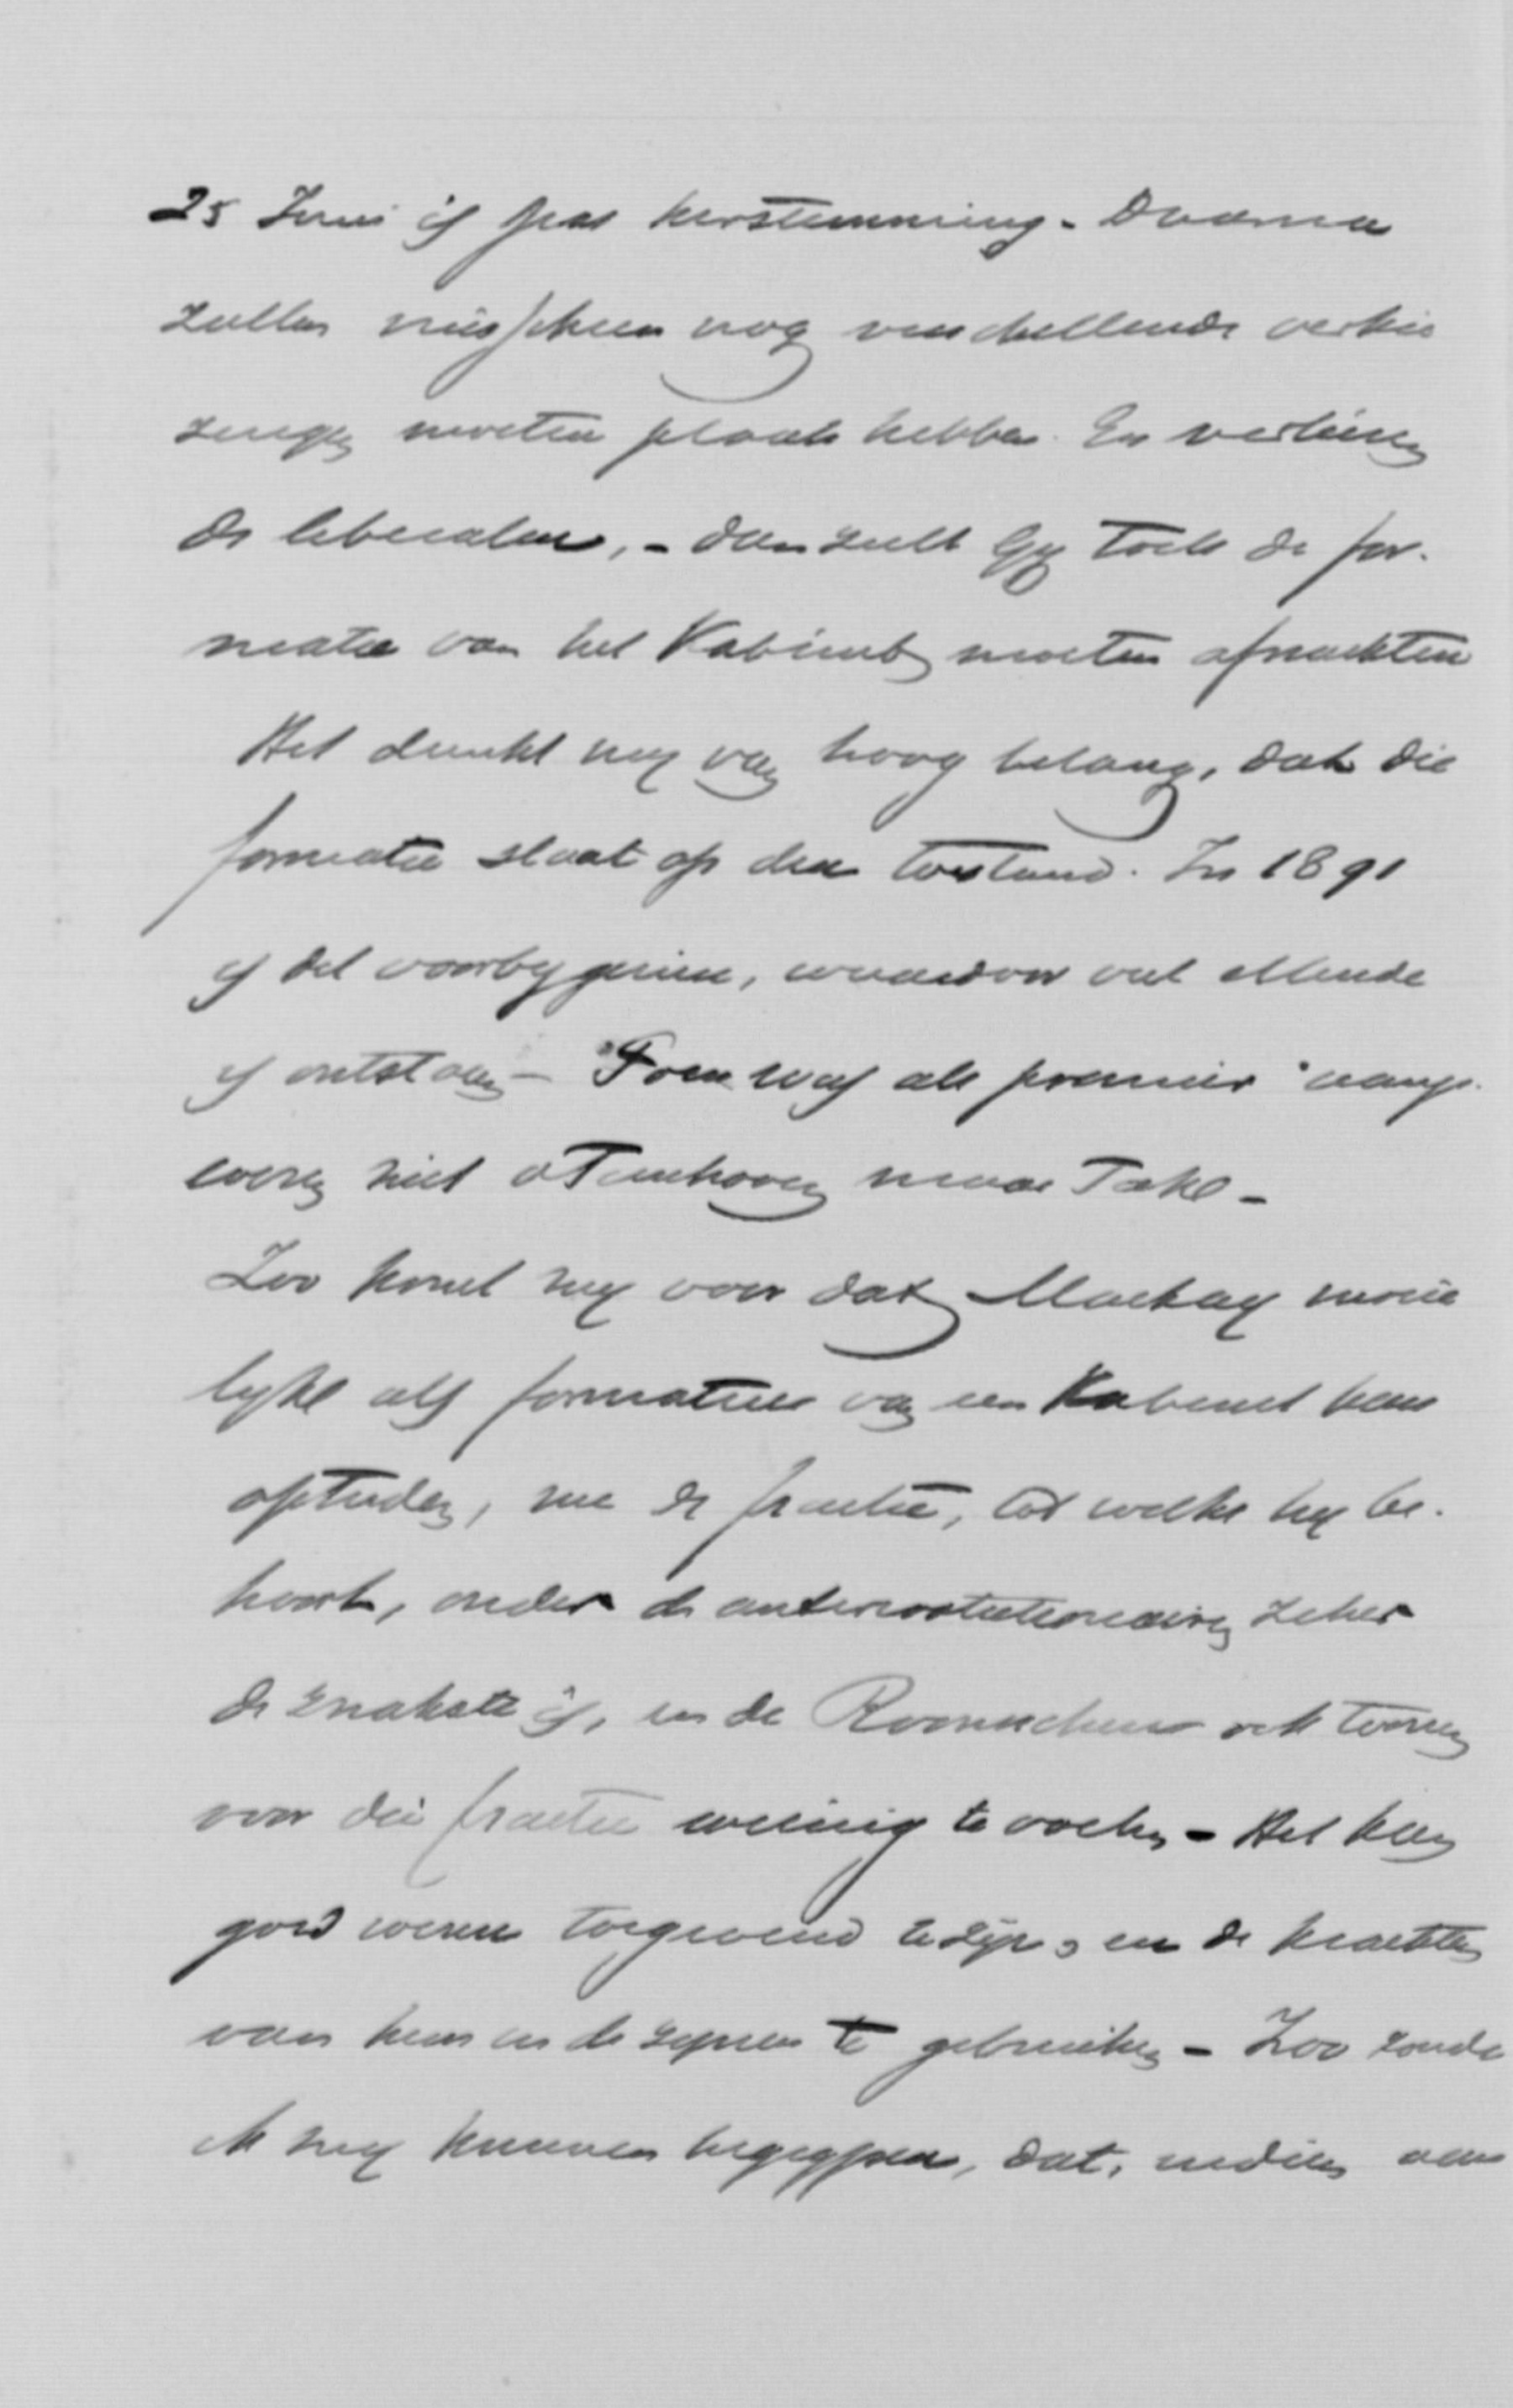 25 Juni is pas herstemming. Daarna
zullen misschien nog verschillende verkie
zingen moeten plaats hebben. En verliezen
de liberalen, - dan zult Gij toch de for-
matie van het Kabinet moeten afwachten
Het dunkt mij van hoog belang, dat die
formatie slaat op den toestand. In 1891
is dat voorbijgezien, waardoor veel ellende
is ontstaan - Toen was als premier aange-
wezen niet v Tienhoven maar Tak -
Zoo komt mij voor dat Mackay moeie
lijk als formateur van een Kabinet kan
optreden, nu de fractie, tot welke hij be-
hoort, onder de antirevolutionairen zeker
de zwakste is, en de Roomschen ook toonen
voor die fractie weinig te voelen - Het kan
goed wezen toegevend te zijn, en de krachten
van hem en de zijnen te gebruiken - Zoo zoude
ik mij kunnen begrijpen, dat, indien aan